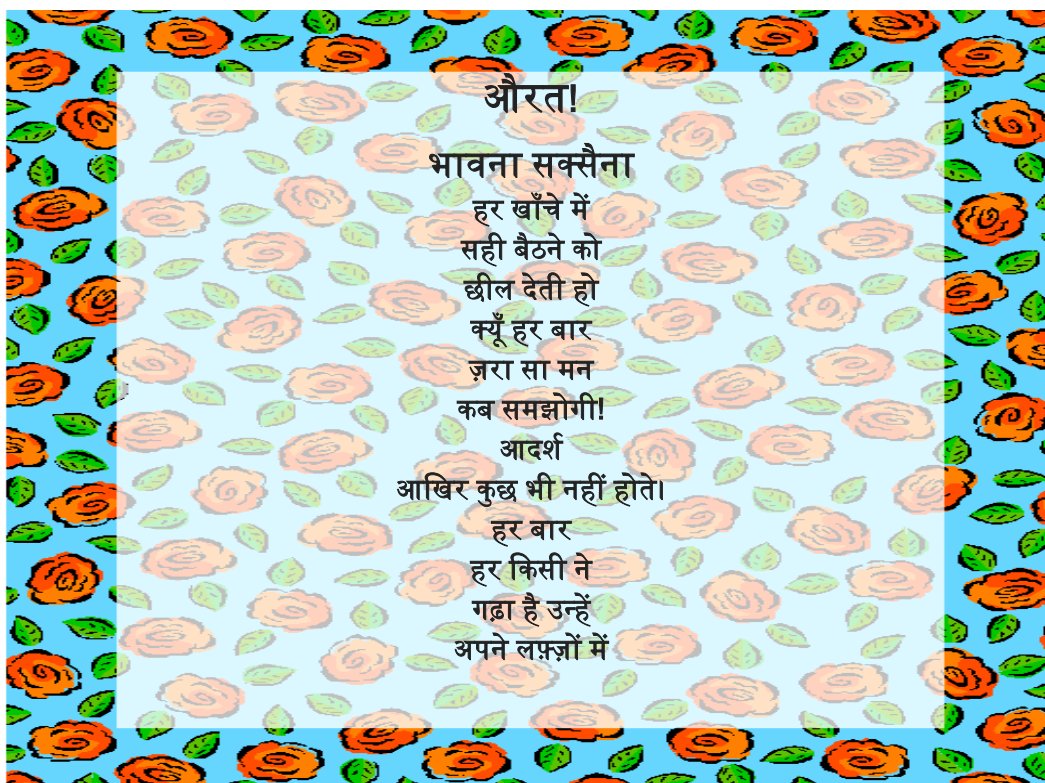 औरत!
भावना सक्सैना
हर खाँचे में
सही बैठने को
छील देती हो
क्यूँ हर बार
ज़रा सा मन
कब समझोगी!
आदर्श
आखिर कुछ भी नहीं होते।
हर बार
हर किसी ने
गढ़ा है उन्हें
अपने लफ़्ज़ों में